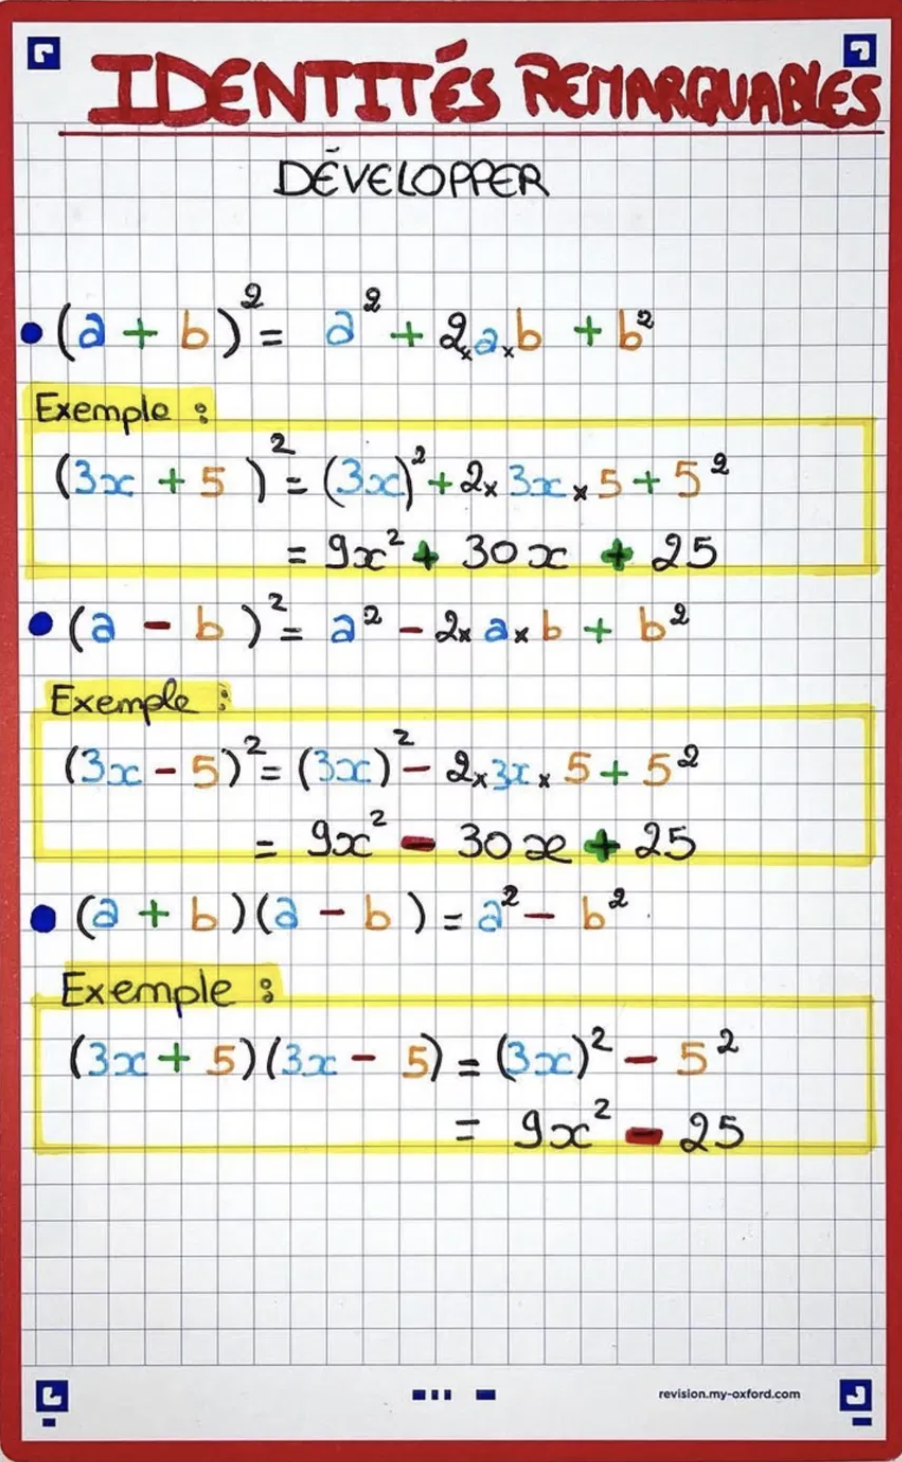 IDENTITÉS REMARQUABLES
DÉVELOPPER
• (a + b)² = a² + 2×a×b + b²
Exemple :
(3x + 5)² = (3x)² + 2×3x×5 + 5²
= 9x² + 30x + 25
• (a - b)² = a² - 2×a×b + b²
Exemple :
(3x - 5)² = (3x)² - 2×3x×5 + 5²
= 9x² - 30x + 25
• (a + b)(a - b) = a² - b²
Exemple :
(3x + 5)(3x - 5) = (3x)² - 5²
= 9x² - 25
revision.my-oxford.com